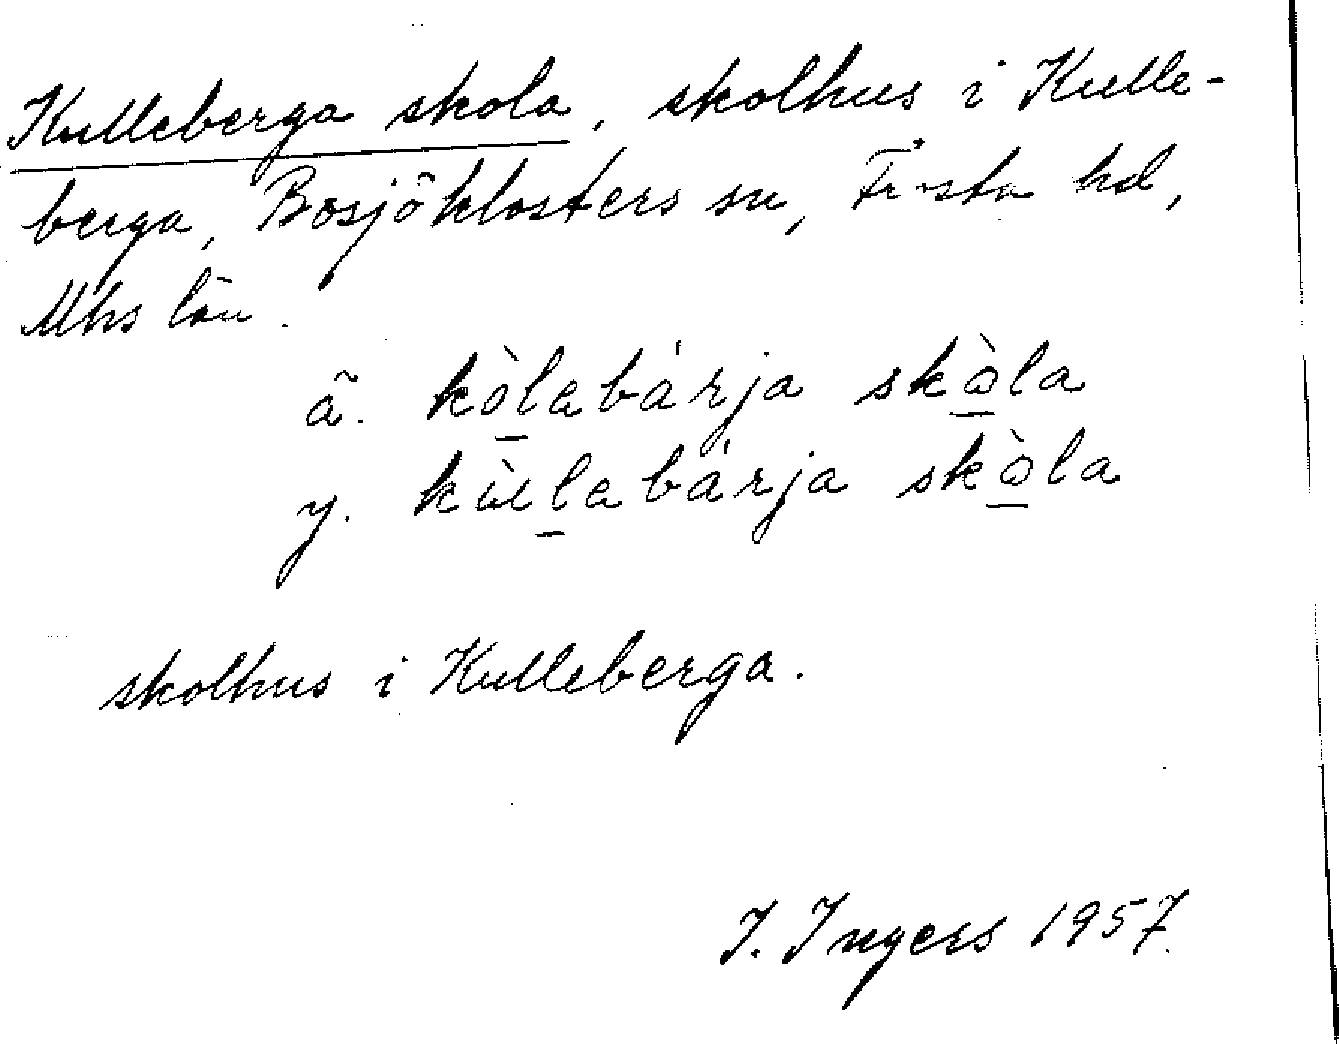 Kulleberga skola, skolhus i Kulle-
berga, Bosjöklosters sn, Frosta hd,
Mhs län.
ä. kòlabárja skòla
y. kùlabárja skòla
skolhus i Kulleberga.
I. Ingers 1957.